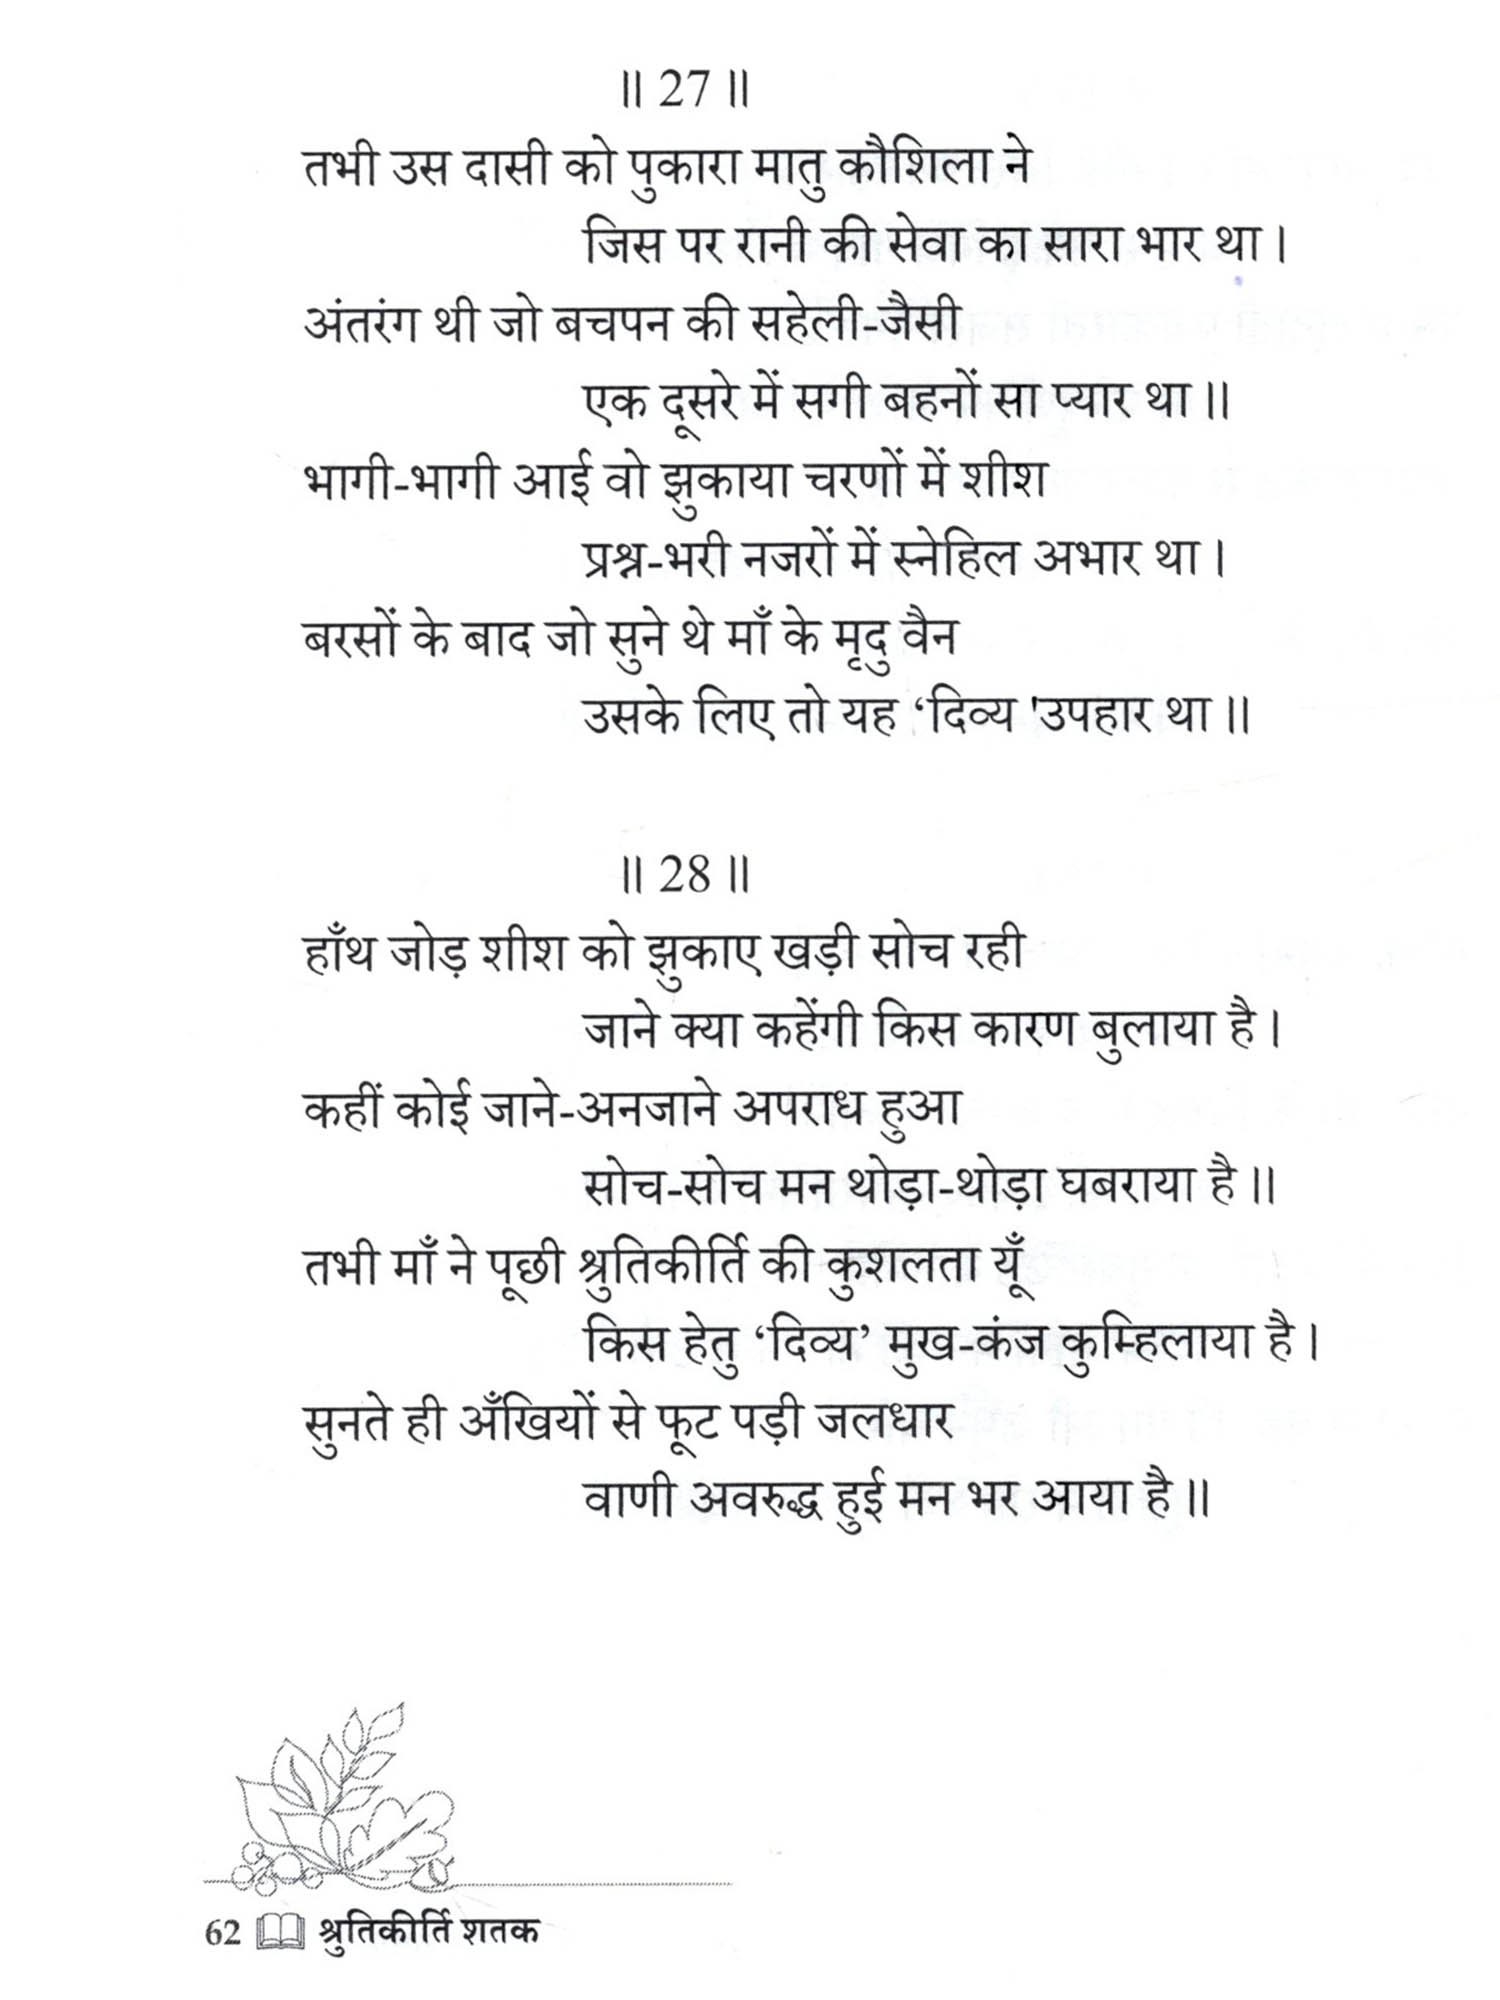 ॥ 27 ॥
तभी उस दासी को पुकारा मातु कौशिला ने
जिस पर रानी की सेवा का सारा भार था।
अंतरंग थी जो बचपन की सहेली-जैसी
एक दूसरे में सगी बहनों सा प्यार था॥
भागी-भागी आई वो झुकाया चरणों में शीश
प्रश्न-भरी नजरों में स्नेहिल अभार था।
बरसों के बाद जो सुने थे माँ के मृदु वैन
उसके लिए तो यह ‘दिव्य 'उपहार था॥
॥ 28 ॥
हाँथ जोड़ शीश को झुकाए खड़ी सोच रही
जाने क्या कहेंगी किस कारण बुलाया है।
कहीं कोई जाने-अनजाने अपराध हुआ
सोच-सोच मन थोड़ा-थोड़ा घबराया है॥
तभी माँ ने पूछी श्रुतिकीर्ति की कुशलता यूँ
किस हेतु ‘दिव्य’ मुख-कंज कुम्हिलाया है।
सुनते ही अँखियों से फूट पड़ी जलधार
वाणी अवरुद्ध हुई मन भर आया है॥
62 श्रुतिकीर्ति शतक